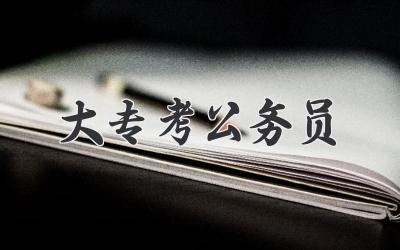 大专考公务员